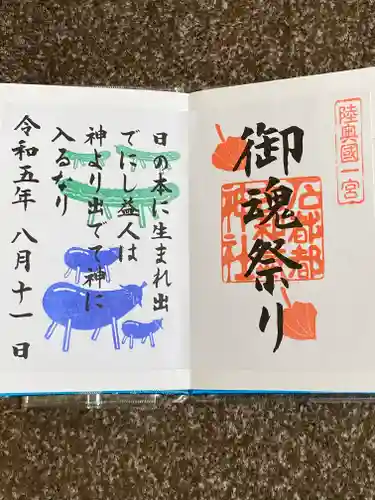 陸奥國一宮
御魂祭り
石都都
神社
日の本に生まれ出
でにし益人は
神より出でて神に
入るなり
令和五年 八月十一日